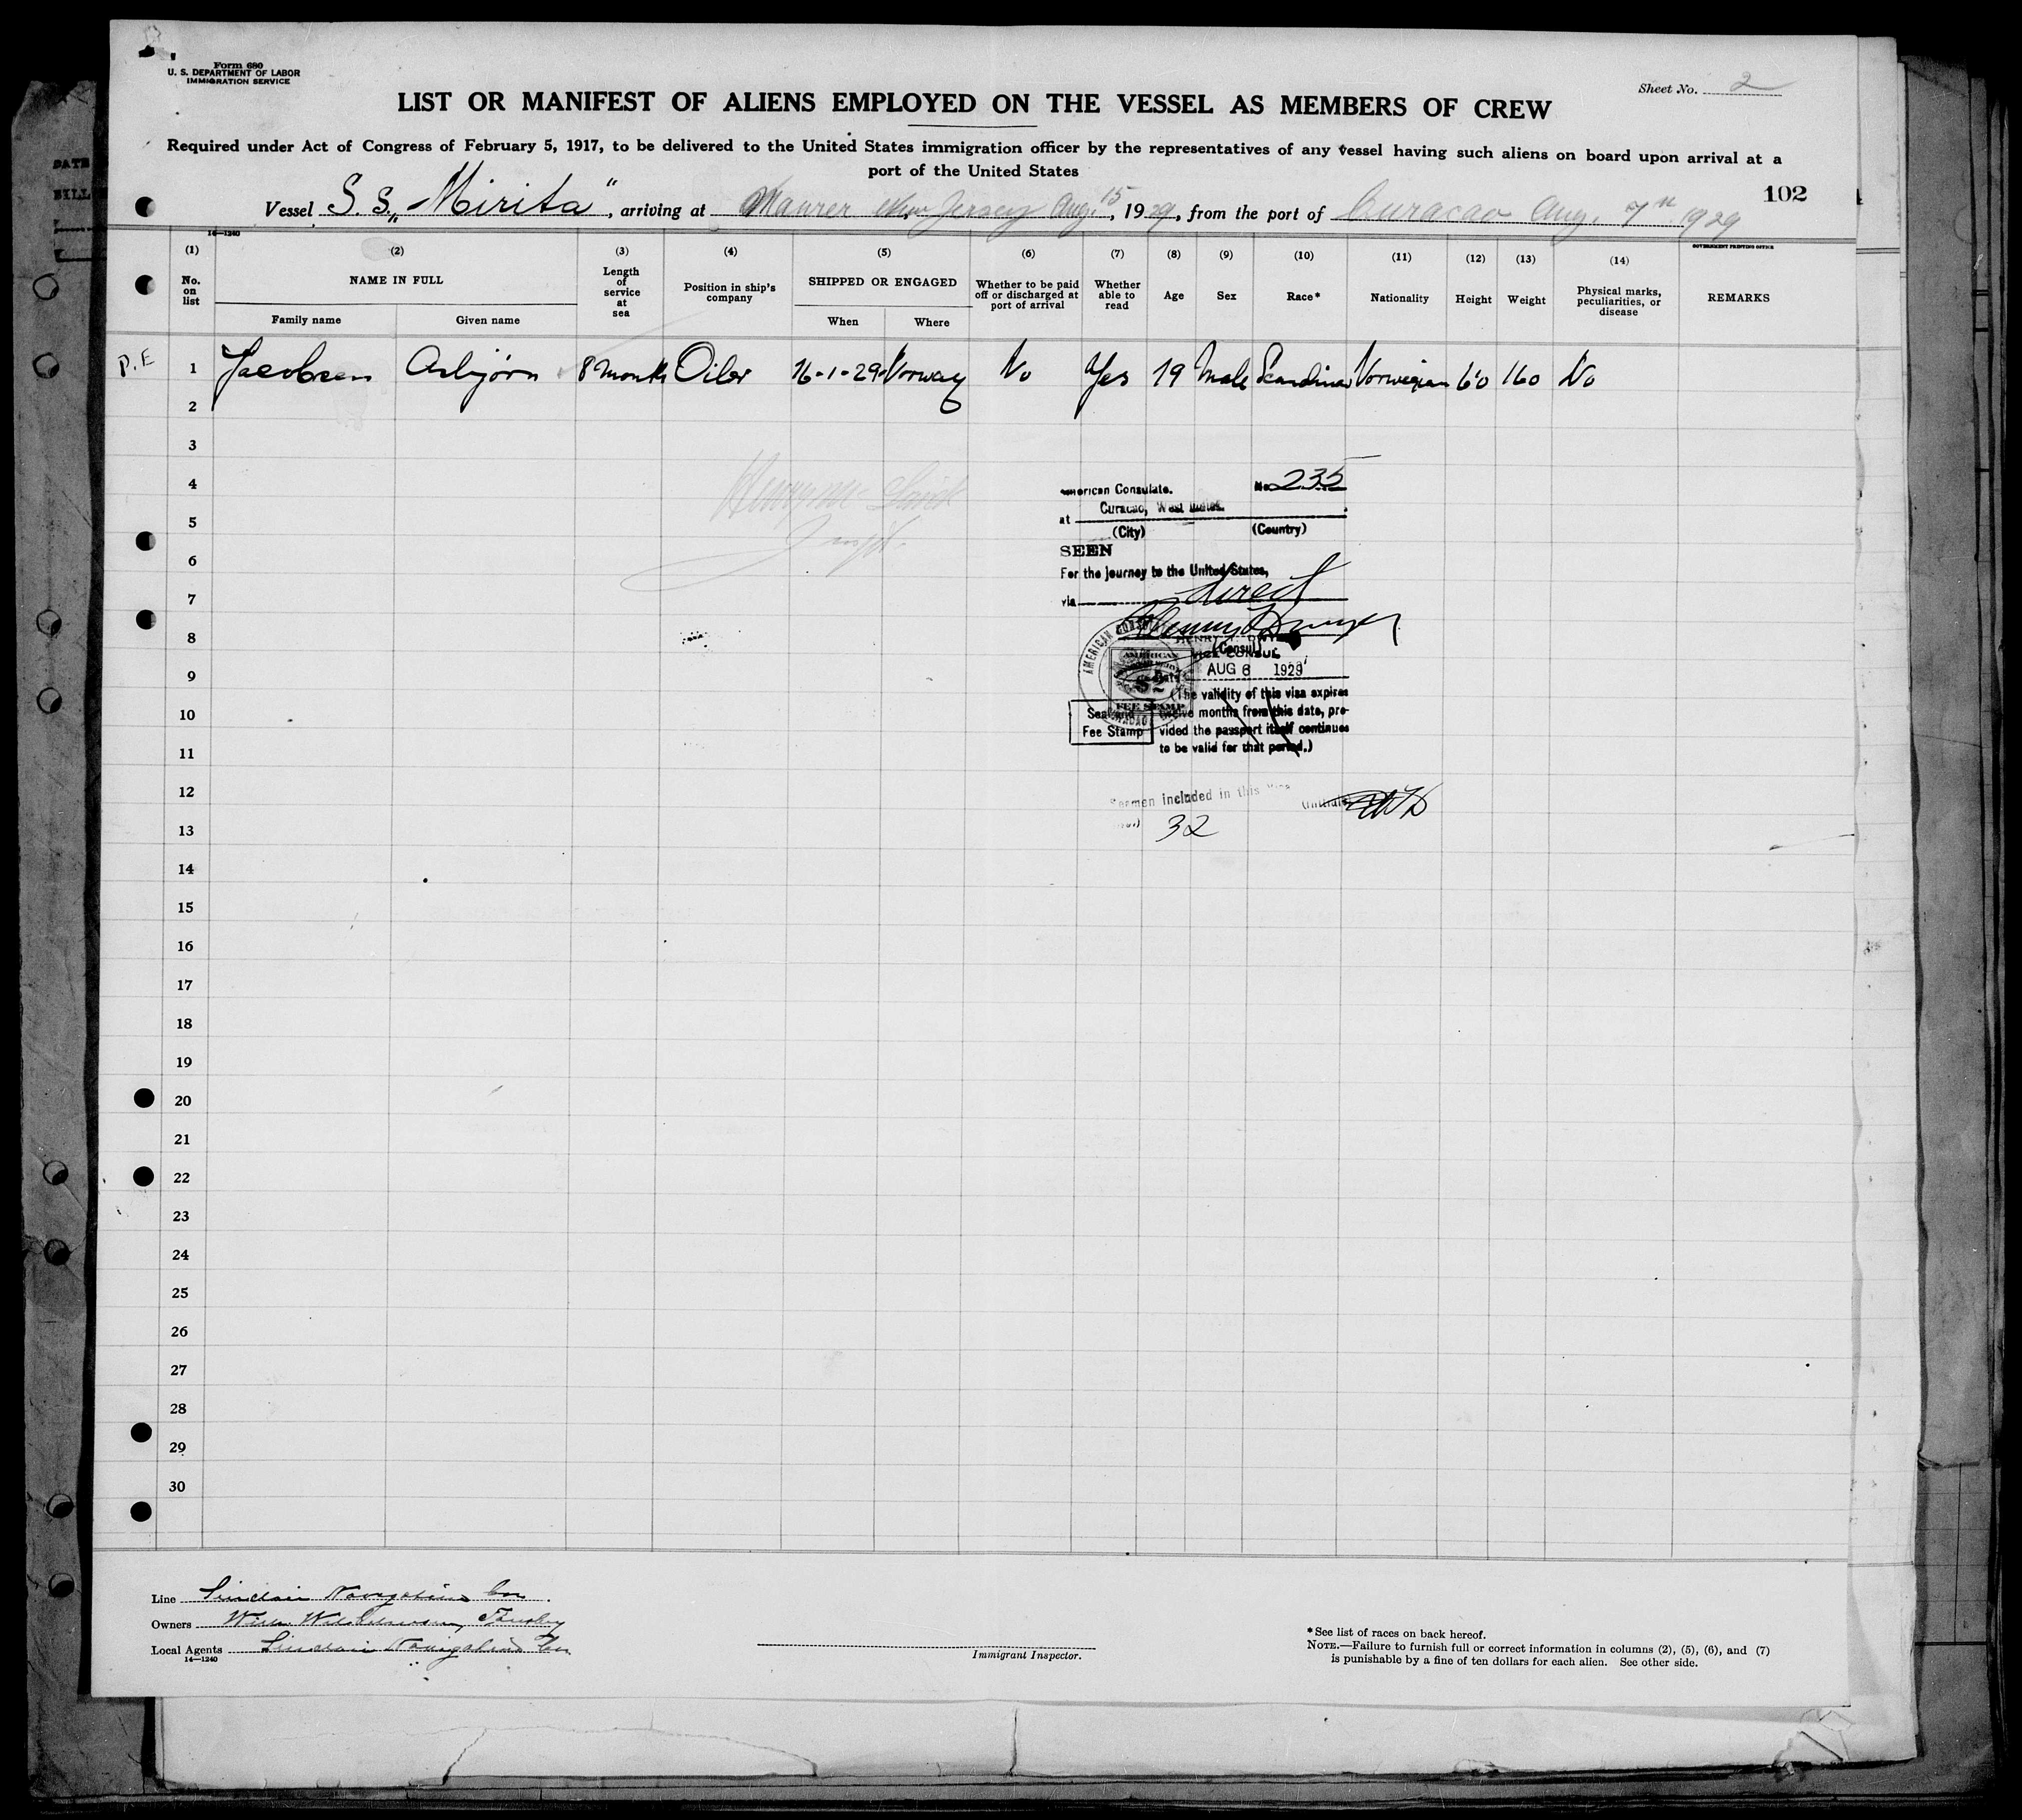 Form 680
U. S. DEPARTMENT OF LABOR
IMMIGRATION SERVICE
Sheet No. 2
LIST OR MANIFEST OF ALIENS EMPLOYED ON THE VESSEL AS MEMBERS OF CREW
Required under Act of Congress of February 5, 1917, to be delivered to the United States immigration officer by the representatives of any vessel having such aliens on board upon arrival at a
port of the United States
102
Vessel S.S. „Mirita“, arriving at Maurer New Jersey Aug. 15, 1929, from the port of Curacao Aug. 7th 1929
14—1240
GOVERNMENT PRINTING OFFICE
(1) (2) (3) (4) (5) (6) (7) (8) (9) (10) (11) (12) (13) (14)
No. on list NAME IN FULL Length of service at sea Position in ship's company SHIPPED OR ENGAGED Whether to be paid off or discharged at port of arrival Whether able to read Age Sex Race* Nationality Height Weight Physical marks, peculiarities, or disease REMARKS
Family name Given name When Where
P.E 1 Jacobsen Asbjörn 8 month Oiler 16-1-29 Norway No Yes 19 Male Scandinav Norwegian 6'0 160 No
2
3
4
5
6
7
8
9
10
11
12
13
14
15
16
17
18
19
20
21
22
23
24
25
26
27
28
29
30
American Consulate. No. 235
at Curacao, West Indies.
(City) (Country)
SEEN
For the journey to the United States,
via direct
HENRY T. DWYER
(Consul)
VICE CONSUL
Date AUG 6 1929
(The validity of this visa expires
twelve months from this date, pro-
vided the passport itself continues
to be valid for that period.)
AMERICAN CONSULATE
AMERICAN
$2
FEE STAMP
Seal and
Fee Stamp
Seamen included in this visa
(Initials)
32
Line Sinclair Navigation Co.
Owners Wilh. Wilhelmsen, Tønsberg
Local Agents Sinclair Navigation Co.
14—1240
Immigrant Inspector.
*See list of races on back hereof.
NOTE.—Failure to furnish full or correct information in columns (2), (5), (6), and (7)
is punishable by a fine of ten dollars for each alien. See other side.